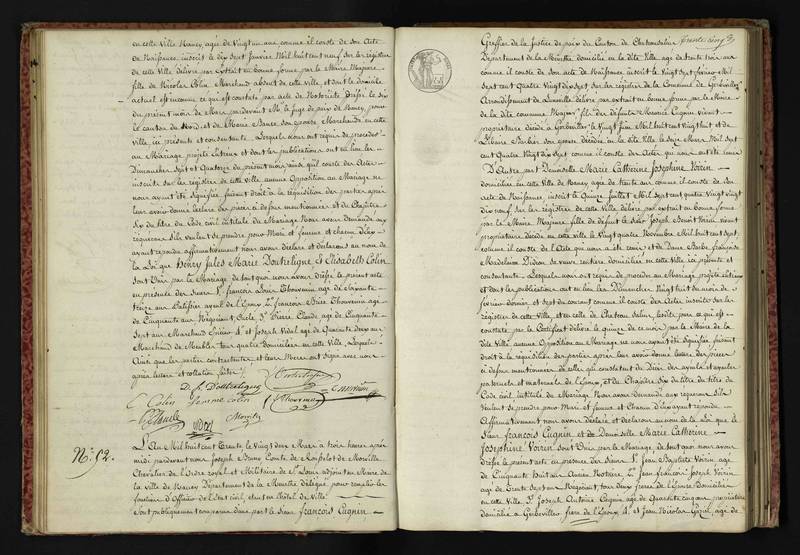 en cette Ville Nancy, agée de Vingt un ans comme il conste de son Acte
de Naissance inscrit le dix Sept Janvier Mil huit cent neuf sur les registres
de cette Ville délivré par Extrait en bonne forme par le Maire Majeure
fille de Nicolas Colin, Marchand absent de cette ville et dont le domicile
actuel est inconnu ce qui est constaté par acte de Notoriété dressé le dix
du présent mois de Mars pardevant M. le Juge de paix de Nancy, pour
le canton du Nord, et de Marie Bance son épouse Marchande en cette
Ville, ici présente et consentante. Lesquels nous ont requis de procéder
au Mariage projeté entreux et dont les publications ont eu lieu les
Dimanches Sept et Quatorze du présent mois ainsi qu'il conste des Actes
inscrits sur les registres de cette ville, aucune Opposition au Mariage ne
nous ayant été Signifiée, faisant droit à la réquisition des parties après
leur avoir donné lecture des pièces ci dessus mentionnées et du Chapitre
Six du titre du Code civil intitulé du Mariage Nous avons demandé aux
requérans S'ils veulent se prendre pour Mari et femme et chacun d'Eux
ayant répondu affirmativement nous avons déclaré et déclarons au nom de
la Loi que Henry Jules Marie Doutreligne, & Elisabeth Colin
sont Unis par le Mariage de tout quoi nous avons dressé le présent acte
en présence des Sieurs 1.° François Louis Thouvenin agé de Soixante
treize ans Patissier ayeul de l'Epoux 2.° François Brice Thouvenin agé
de Cinquante ans Négociant, Oncle 3.° Pierre Claude agé de Cinquante
Sept ans Marchand Epicier 4.° et Joseph Vidal agé de Quarante deux ans
Marchand de Meubles tous quatre Domiciliés en cette Ville, Lesquels
Ainsi que les parties contractantes et leurs Meres ont Signé avec nous
après lecture et collation faites
D. J. Doutreligne
E Colin femme Colin
N.° 52.
L'An Mil huit cent Trente le Vingt deux Mars à trois heures après
midi pardevant nous Joseph Bruno Comte de
Chevalier de l'Ordre royal et Militaire de S.t Louis adjoint au Maire de
la Ville de Nancy Département de la Meurthe délégué pour remplir les
fonctions d'Officier de l'Etat civil, étant en l'hôtel de Ville
Sont publiquement comparus d'une part le Sieur François Cugnin
trente cinq
Greffier de la Justice de paix du Canton de
Département de la Meurthe domicilié en la dite Ville, agé de trente trois ans
comme il conste de son acte de Naissance inscrit le Vingt Sept février Mil
sept cent Quatre Vingt dix Sept sur les registres de la Commune de Gerbéviller
Arrondissement de Lunéville délivré par extrait en bonne forme par le Maire
de la dite commune Majeur fils de défunts Maurice Cugnin vivant
propriétaire décédé à Gerbéviller le Vingt Juin Mil huit cent Vingt huit et de
Libaire Barbier son épouse décédée en la dite Ville le Seize Mars Mil Sept
cent Quatre Vingt dix Sept comme il conste des Actes qui nous ont été remis
D'Autre part Demoiselle Marie Catherine Josephine Voirin
domiciliée en cette Ville de Nancy agée de trente ans comme il conste de son
acte de Naissance, inscrit le Quinze Juillet Mil Sept cent quatre Vingt dix
neuf sur les registres de cette Ville délivré par extrait en bonne forme
par le Maire Majeure fille de défunt le Sieur Joseph Benoit Voirin vivant
propriétaire décédé en cette Ville le quatre Novembre Mil huit cent Sept,
comme il conste de l'Acte qui nous a été remis et de Dame Barbe françoise
Magdeleine Didion Sa veuve rentiere domiciliée en cette Ville ici présente et
consentante. Lesquels nous ont requis de procéder au Mariage projeté entreux
et dont les publications ont eu lieu les Dimanches Vingt huit du mois de
février dernier et sept du courant comme il conste des Actes inscrits sur les
registres de cette Ville, et en celle de Chateau Salins, les dits pour ce qui est
constaté par le Certificat délivré le quinze de ce mois par le Maire de la
dite Ville aucune Opposition au Mariage ne nous ayant été Signifiée faisant
droit à la réquisition des parties après leur avoir donné lecture des pièces
ci dessus mentionnées de celles qui constatent du Décès des ayeuls et ayeules
paternels et maternels de l'Epoux, et du Chapitre Six du titre du titre du
Code civil, intitulé du Mariage Nous avons demandé aux requérans S'ils
Veulent se prendre pour Mari et femme et Chacun d'Eux ayant répondu
Affirmativement nous avons déclaré et déclarons au nom de la Loi que le
Sieur François Cugnin et Demoiselle Marie Catherine
Josephine Voirin sont Unis par le Mariage, de tout quoi nous avons
dressé le présent acte en présence des Sieurs 1.° Jean Baptiste Voirin agé
de Cinquante huit ans Ancien Notaire 2.° Jean françois Joseph Voirin
agé de Trente Sept ans Négociant, tous deux freres de l'Epouse Domiciliés
en cette Ville 3.° Joseph Antoine Cugnin agé de Quarante cinq ans propriétaire
domicilié à Gerbéviller frere de l'Epoux 4.° et Jean Nicolas agé de